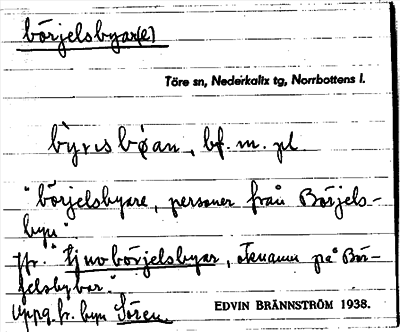 börjelsbyar(e)
Töre sn, Nederkalix tg, Norrbottens l.
by̆ris bøan, bf. m. pl
"börjelsbyare, personer från Börjels-
byn".
Jfr. "tjuvbörjelsbyar, öknamn på Bör-
jelsbybor."
Uppg. fr. byn Sören.
EDVIN BRÄNNSTRÖM 1938.